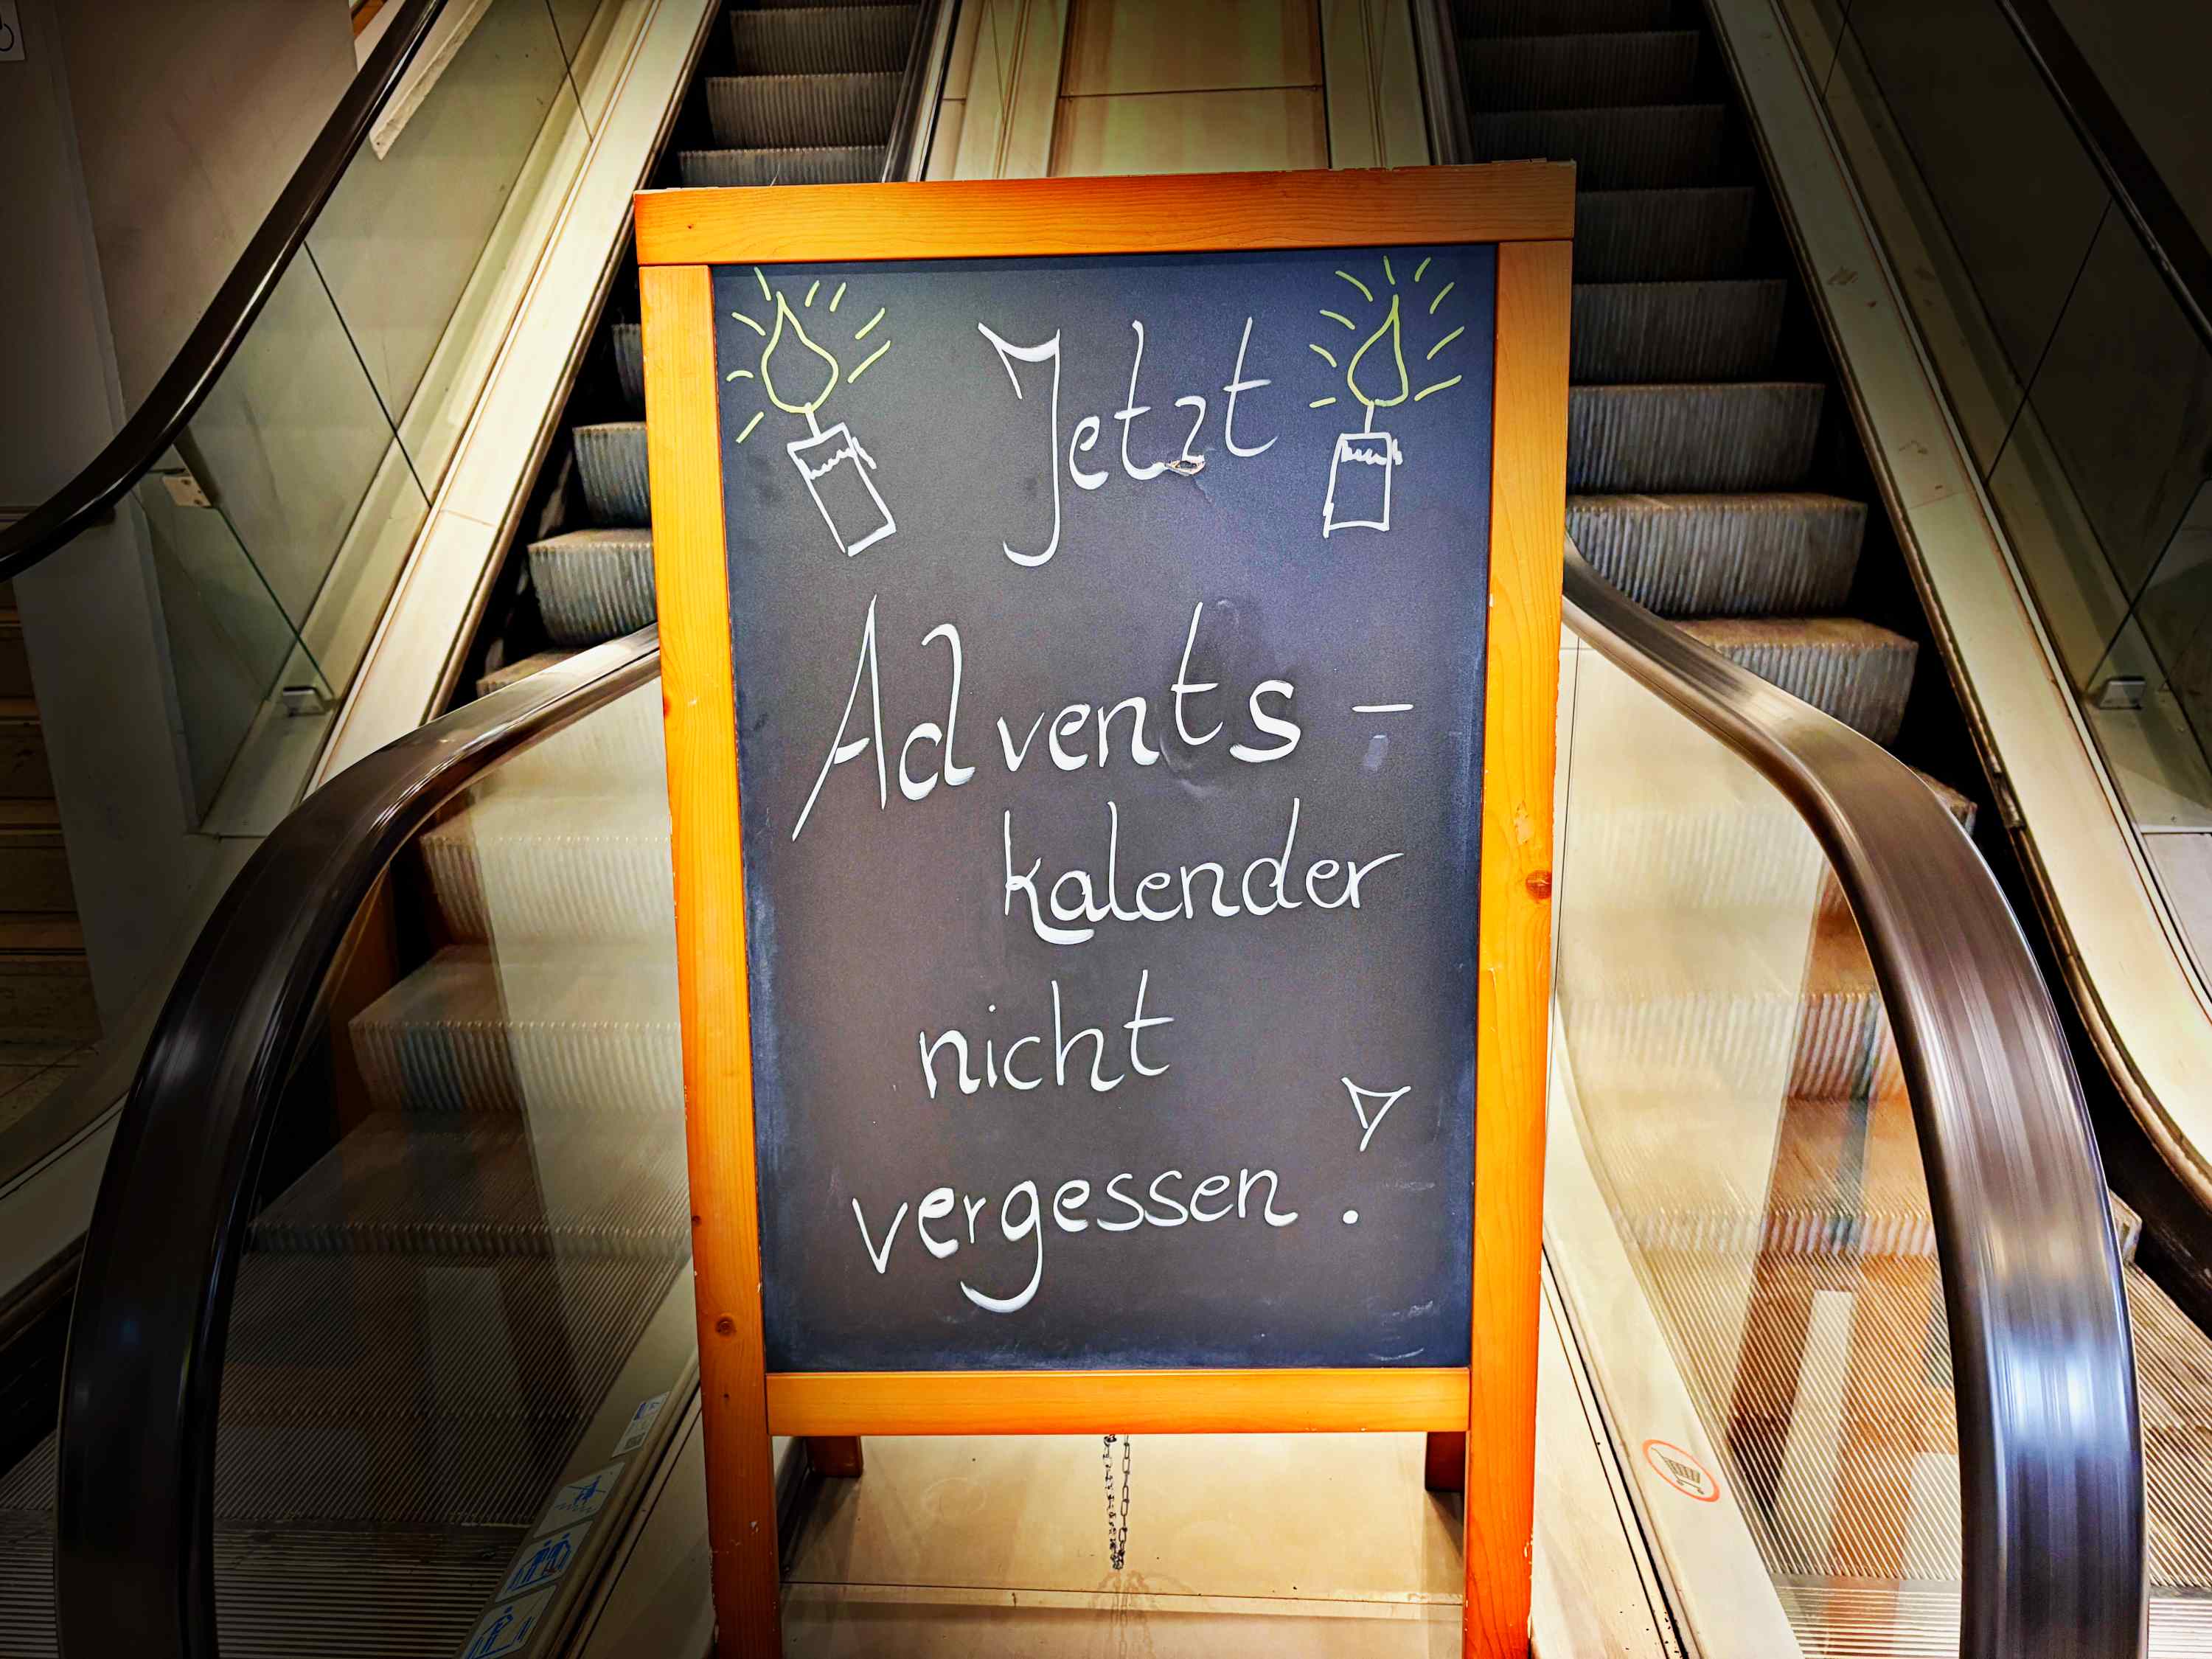 Jetzt
Advents-
kalender
nicht
vergessen!